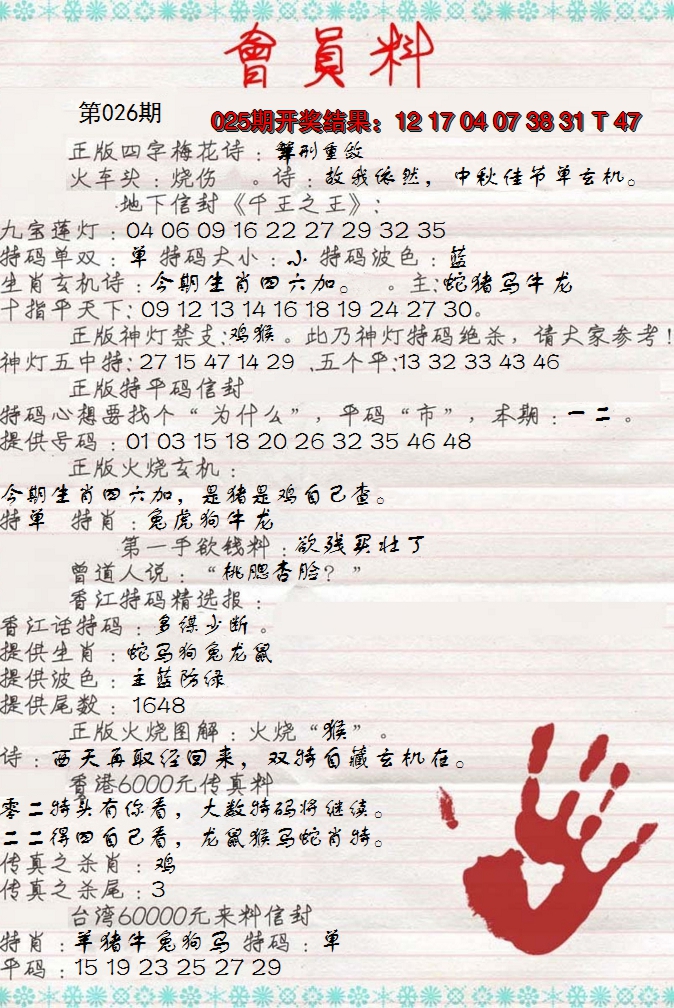 會員料
第026期
025期开奖结果：12 17 04 07 38 31 T 47
正版四字梅花诗：繁刑重敛
火车头：烧伤 。诗：故我依然，中秋佳节单玄机。
地下信封《千王之王》：
九宝莲灯：04 06 09 16 22 27 29 32 35
特码单双：单 特码大小：小 特码波色：蓝
生肖玄机诗：今期生肖四六加。 。主:蛇猪马牛龙
十指平天下:09 12 13 14 16 18 19 24 27 30。
正版神灯禁支:鸡猴。此乃神灯特码绝杀，请大家参考！
神灯五中特:27 15 47 14 29 、五个平:13 32 33 43 46
正版特平码信封
特码心想要找个“为什么”，平码“市”，本期：一二。
提供号码：01 03 15 18 20 26 32 35 46 48
正版火烧玄机：
今期生肖四六加，是猪是鸡自己查。
特单 特肖：兔虎狗牛龙
第一手欲钱料：欲钱买壮丁
曾道人说：“桃腮杏脸？”
香江特码精选报：
香江话特码：多谋少断。
提供生肖：蛇马狗兔龙鼠
提供波色：主蓝防绿
提供尾数：1648
正版火烧图解：火烧“猴”。
诗：西天再取经回来，双特自藏玄机在。
香港6000元传真料
零二特头有你看，大数特码将继续。
二二得四自己看，龙鼠猴马蛇肖特。
传真之杀肖：鸡
传真之杀尾：3
台湾60000元来料信封
特肖：羊猪牛兔狗马 特码：单
平码：15 19 23 25 27 29